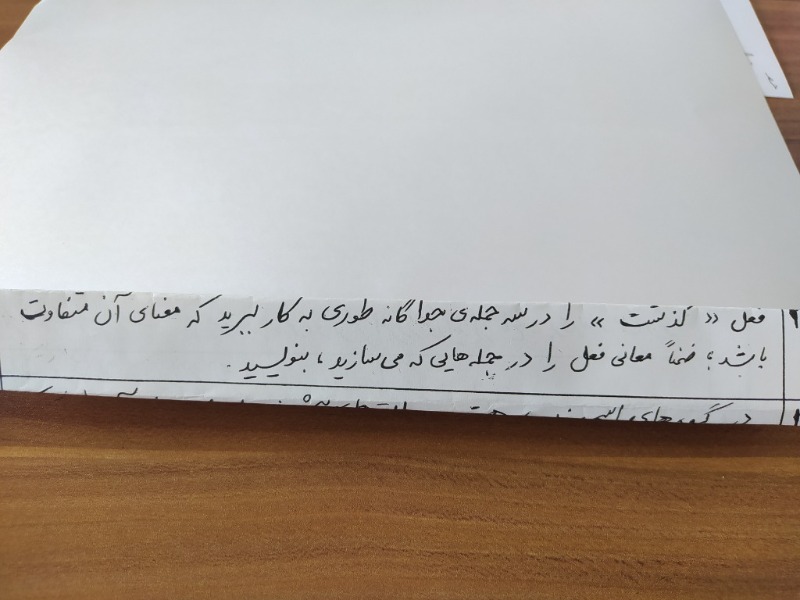 فعل « گذشت » را در سه جمله‌ی جداگانه طوری به کار ببرید که معنای آن متفاوت
باشد؛ ضمناً معانی فعل را در جمله‌هایی که می‌سازید، بنویسید.